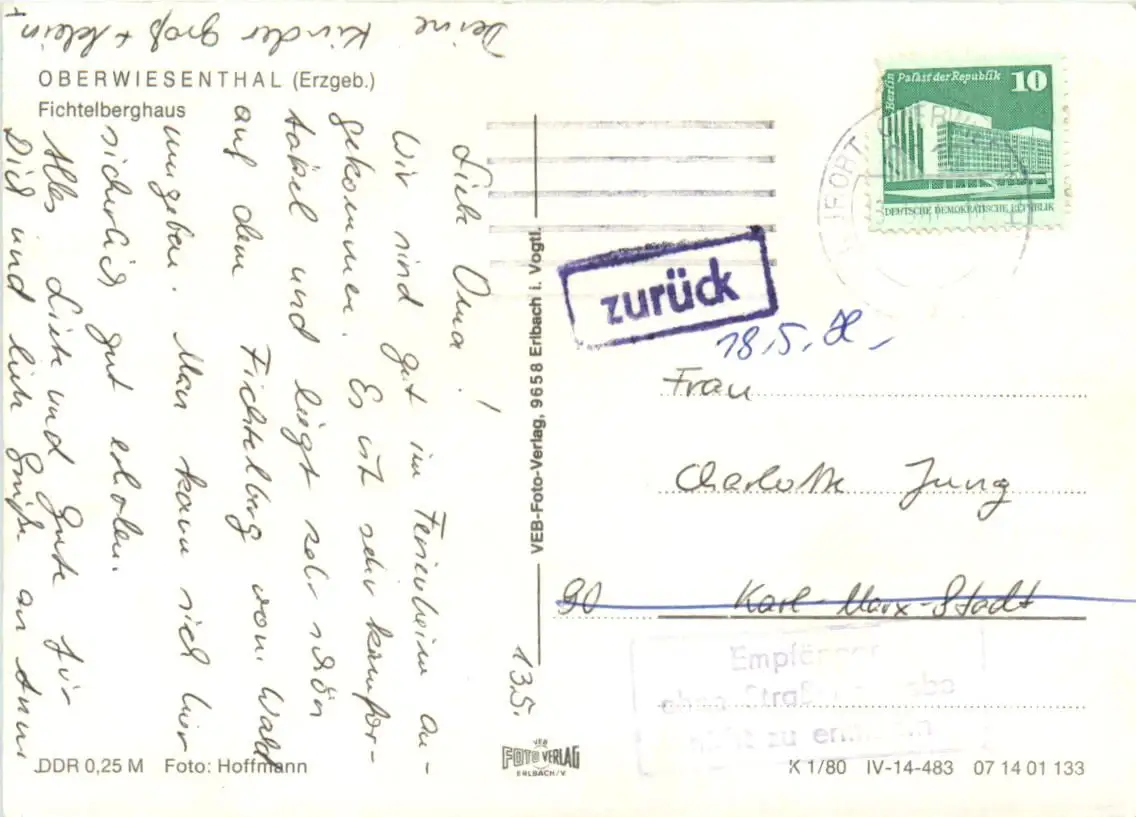 OBERWIESENTHAL (Erzgeb.)
Fichtelberghaus
13.5.
Liebe Oma!
Wir sind gut im Ferienheim an-
gekommen. Es ist sehr komfor-
tabel und liegt sehr schön
auf dem Fichtelberg vom Wald
umgeben. Man kann sich hier
sicherlich gut erholen.
Alles Liebe und Gute für
Dich und liebe Grüße an
Deine Kinder groß + klein
DDR 0,25 M Foto: Hoffmann
VEB-Foto-Verlag, 9658 Erlbach i. Vogtl.
VEB
FOTO VERLAG
ERLBACH/V.
Berlin Palast der Republik 10
DEUTSCHE DEMOKRATISCHE REPUBLIK
zurück
18.5.
Frau
Charlotte Jung
90 Karl-Marx-Stadt
Empfänger
ohne Straßenangabe
nicht zu ermitteln
K 1/80 IV-14-483 07 14 01 133